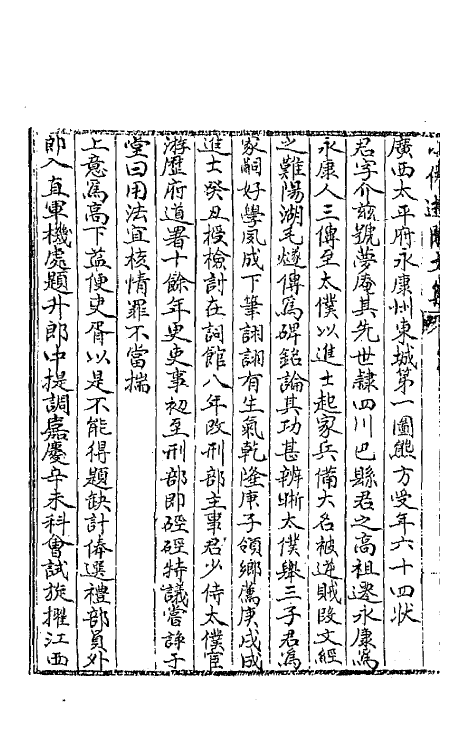 廣西太平府永康州東城第一圖熊方受年六十四狀
君字介茲號夢庵其先世隸四川巴縣君之高祖遷永康為
永康人三傳至太僕以進士起家兵備大名被逆賊段文經
之難陽湖毛燧傳為碑銘論其功甚辨晰太僕舉三子君為
家嗣好學夙成下筆詡詡有生氣乾隆庚子領鄉薦庚戌成
進士癸丑授檢討在詞館八年改刑部主事君少侍太僕宦
游歷府道署十餘年更吏事初至刑部即硜硜特議嘗諍于
堂曰用法宜核情罪不當揣
上意為高下益使吏胥以是不能得題缺計俸選禮部員外
郎入直軍機處題升郎中提調嘉慶辛未科會試旋擢江西